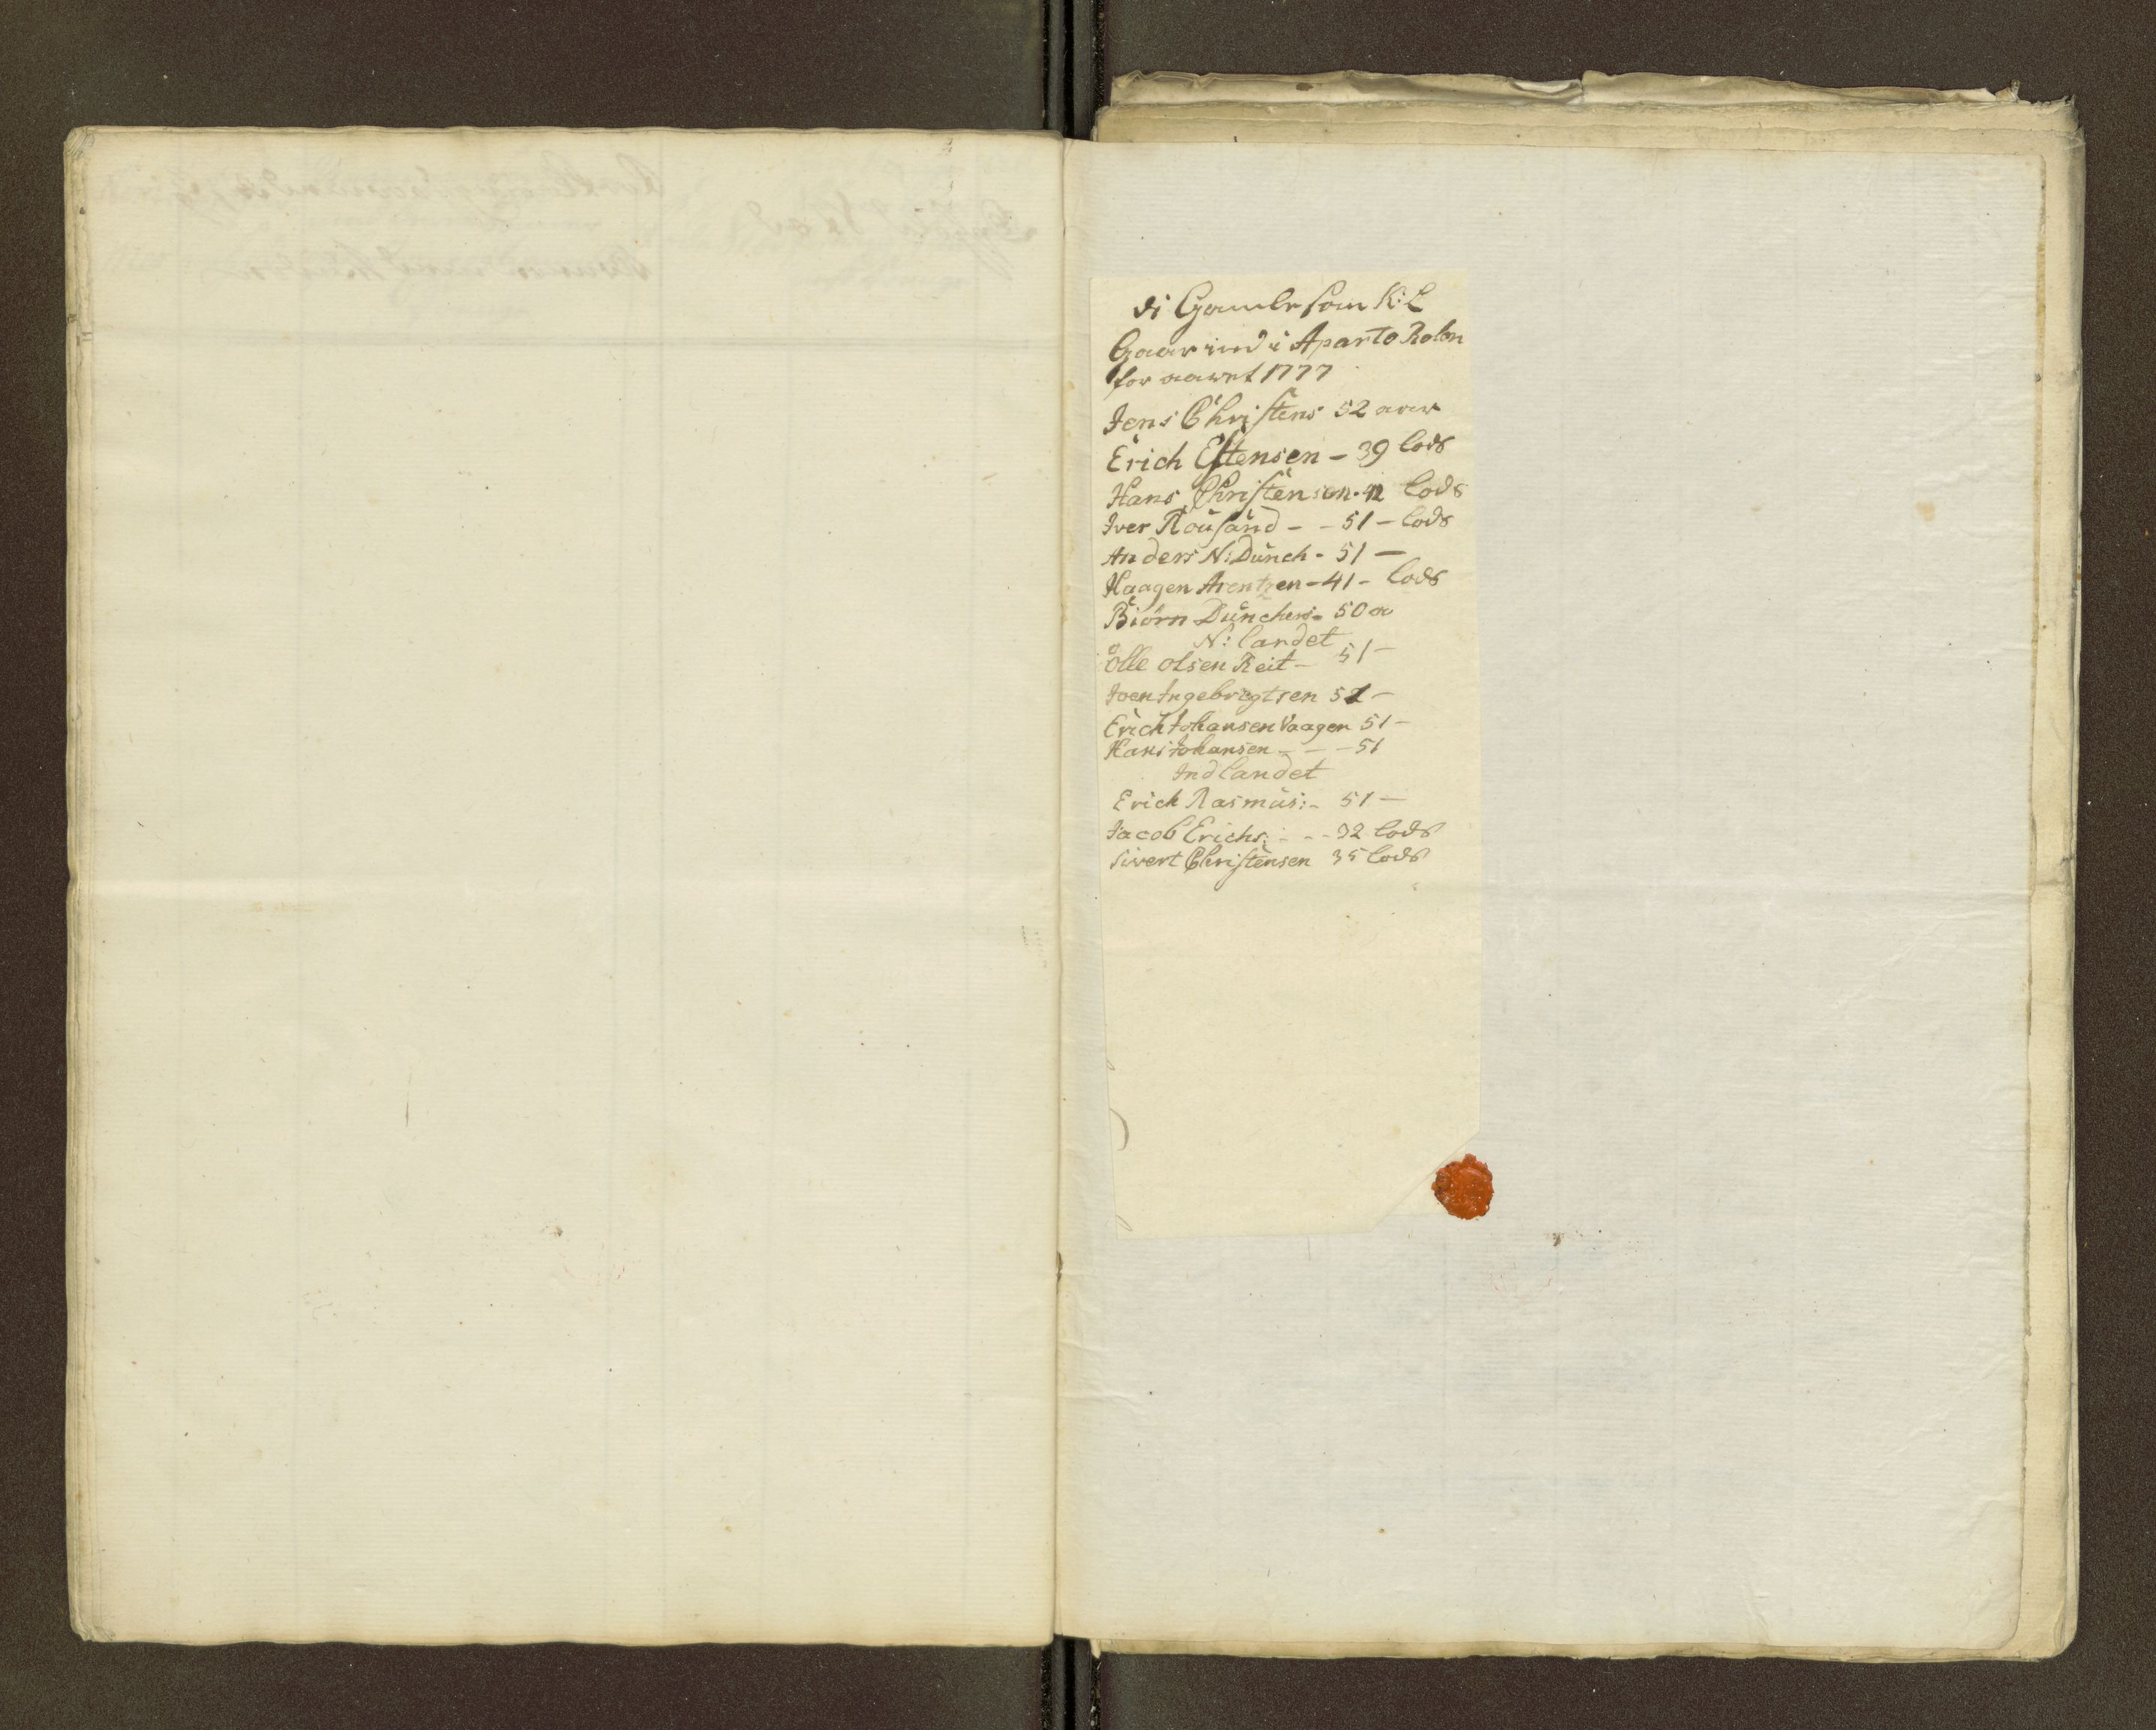 di Gamle som K: L
Gaar ind i Aparto Rolen
for aaret 1777
Jens Christens 52 aar
Erich Estensen - 39 lods
Hans Christensen - 42 lods
Iver Rousand - - 51 - lods
Anders N: Dunch - 51 -
Haagen Arentzen - 41 - lods
Biörn Dunchers - 50 aa
N: landet
Olle Olsen Reit - 51 -
Iven Ingebrigtsen 51 -
Erich Johansen Vaagen 51 -
Hans Johansen - - - 51
Indlandet
Erich Rasmus: - 51 -
Jacob Erichs: - - - 32 lods
Sivert Christensen 35 lods